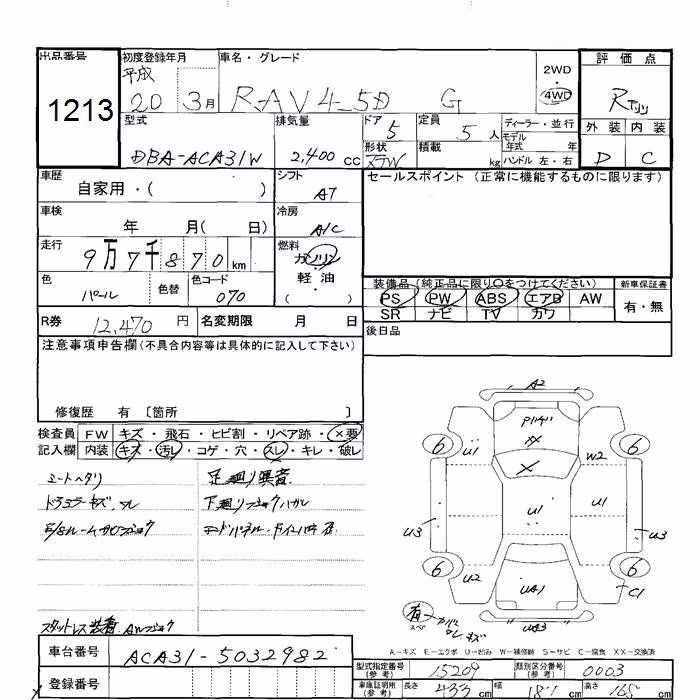 出品番号
1213
初度登録年月
平成
20 3月
車名・グレード
RAV4 5D G
2WD
4WD
評価点
R
外装 内装
D C
型式
DBA-ACA31W
排気量
2,400 cc
ドア 5
形状
定員 5 人
積載 kg
ディーラー・並行
モデル
年式 年
ハンドル 左・右
車歴
自家用・( )
シフト
AT
セールスポイント (正常に機能するものに限ります)
車検
年 月( 日)
冷房
A/C
走行
9万7千870km
燃料
ガソリン
・
軽・油
( )
色
パール
色替
色コード
070
装備品(純正品に限り○をつけてください)
PS PW ABS エアB AW
SR ナビ TV カワ
新車保証書
有・無
R券 12,470 円
名変期限 月 日
後日品
注意事項申告欄(不具合内容等は具体的に記入して下さい)
修復歴 有 〔箇所 〕
検査員 FW キズ・飛石・ヒビ割・リペア跡・×要
記入欄 内装 キズ・汚レ・コゲ・穴・スレ・キレ・破レ
シートヘタリ
足廻り異音
下廻り
スタットレス装着
A2
XX
X
6
6
U1
W2
U1
U1
U3
U3
6
6
U2
UA1
C1
UA3
有
スペア
A-キズ E-エクボ U-凹み W-補修跡 S-サビ C-腐食 XX-交換済
車台番号
ACA31-5032982
登録番号
型式指定番号
(参考)
15209
類別区分番号
(参考)
0003
車庫証明用
(参考)
長さ 433 cm
幅 181 cm
高さ 165 cm